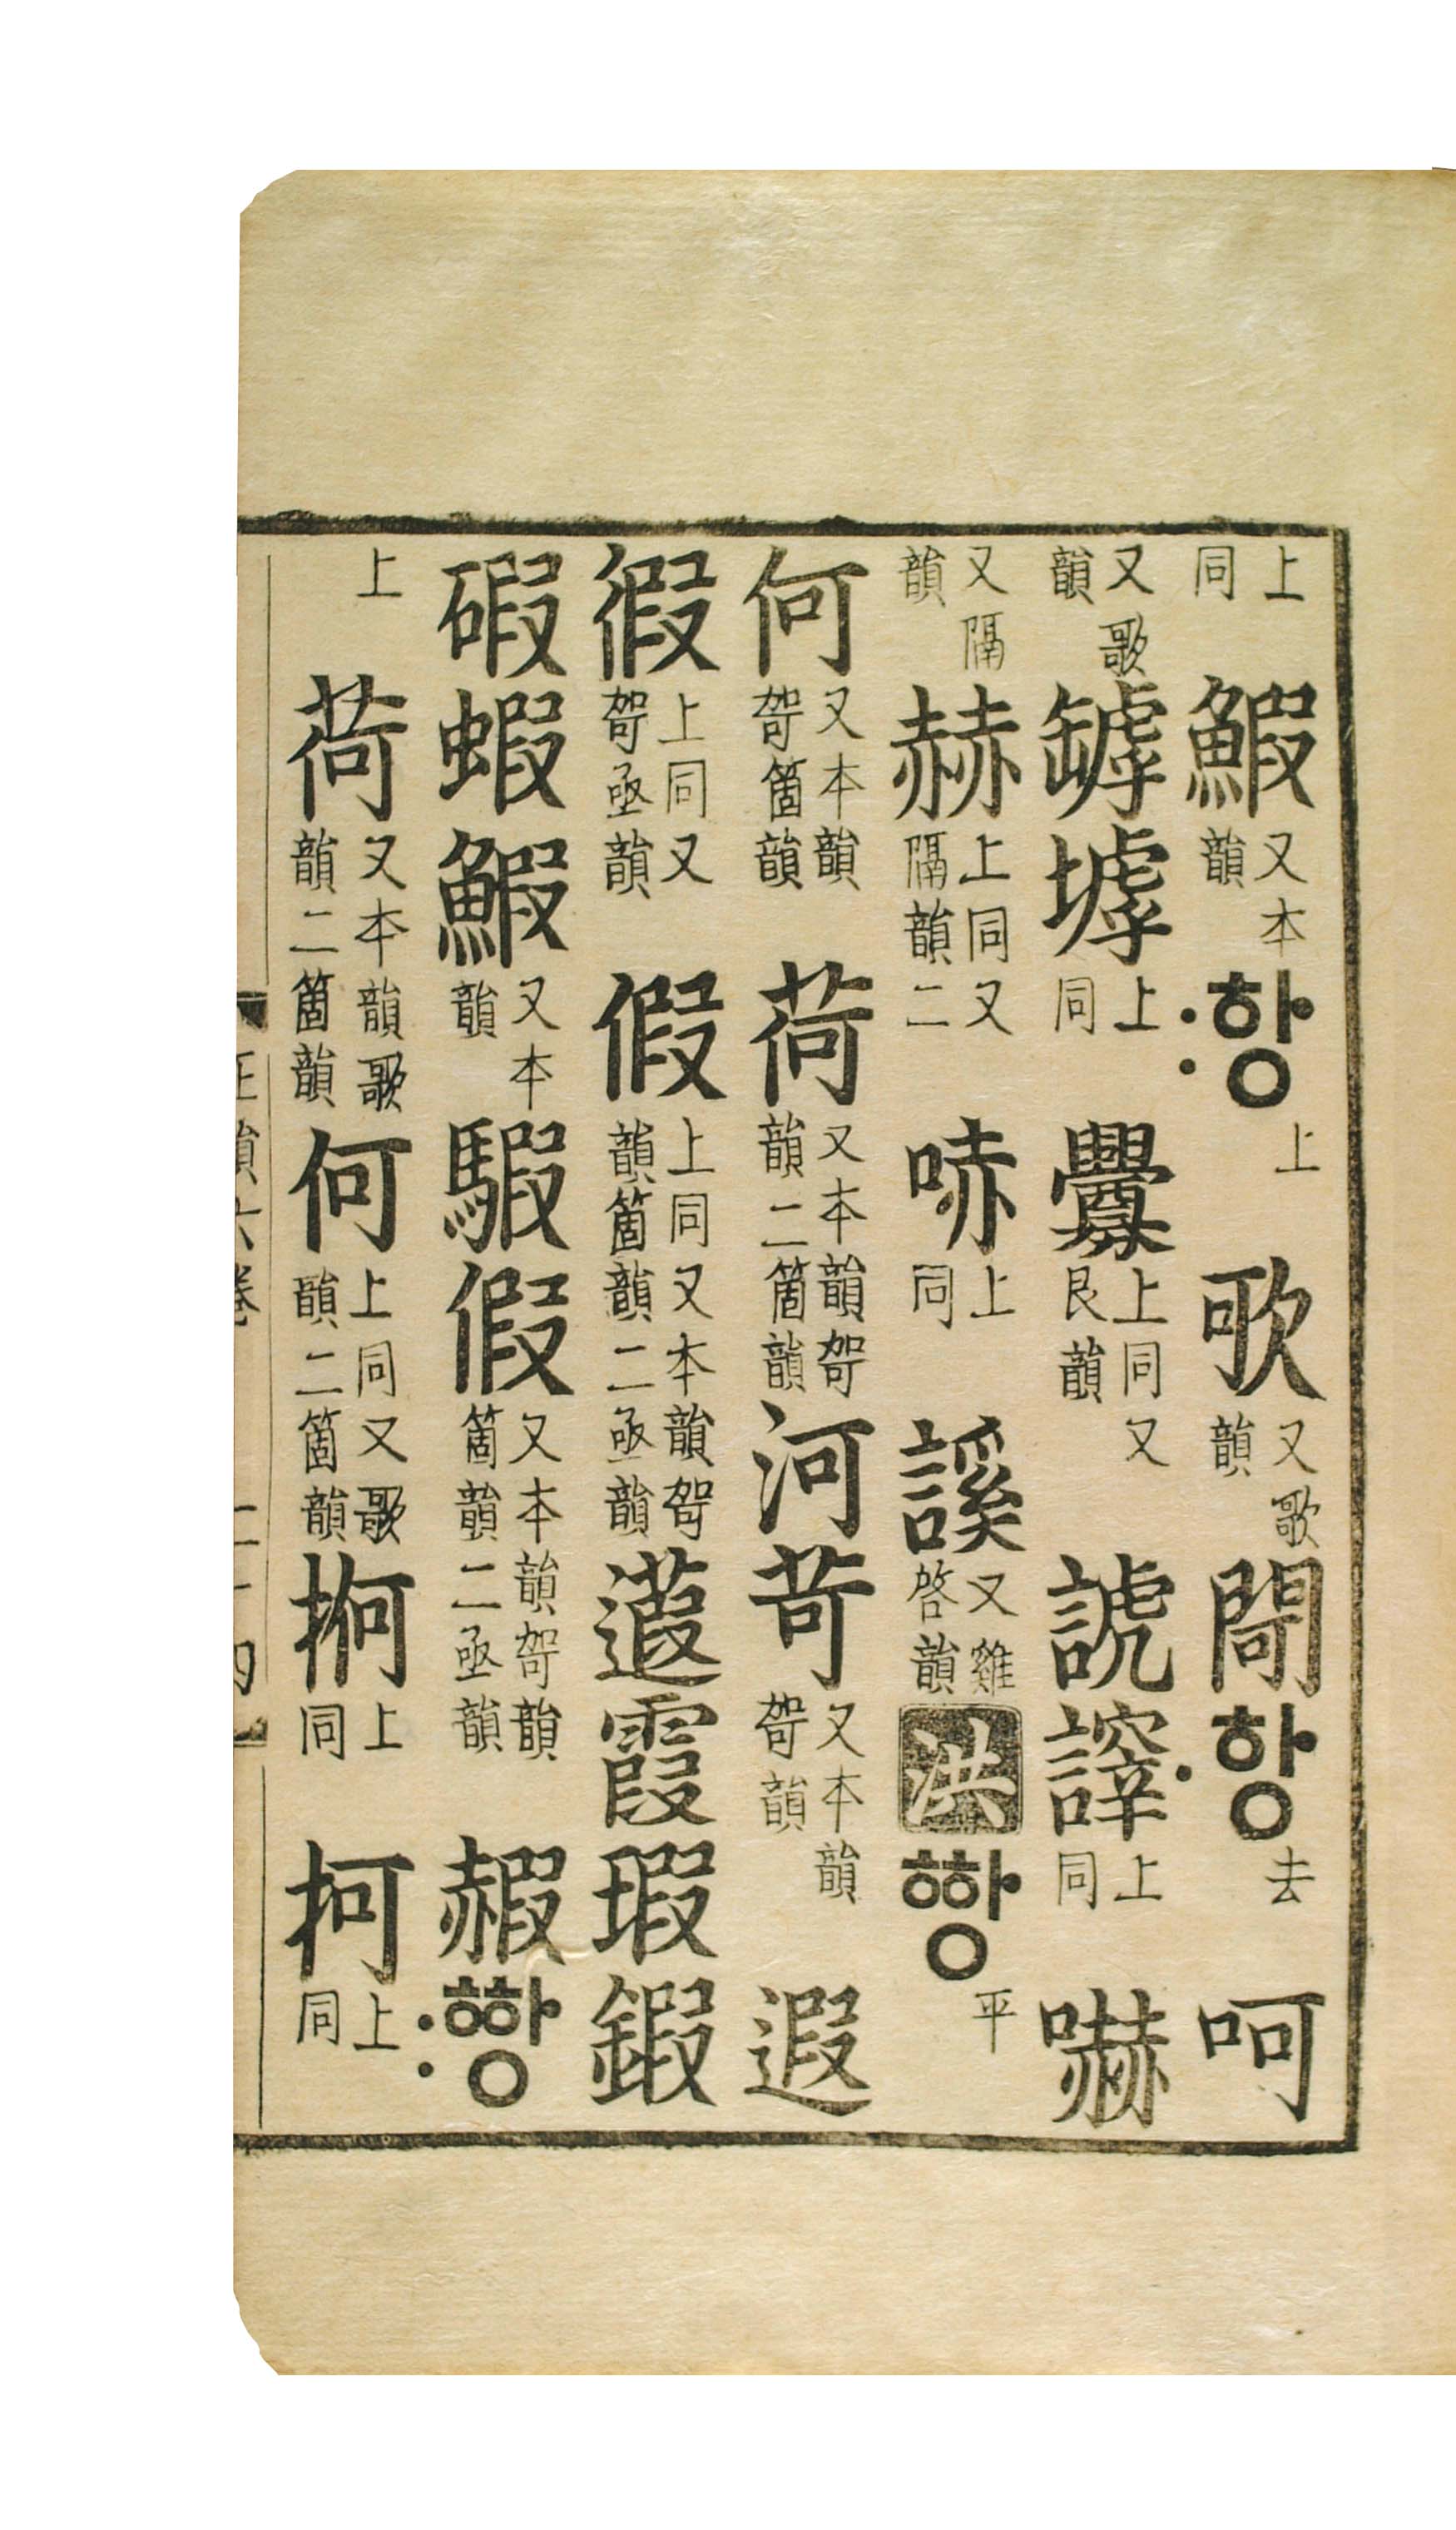 上同鰕又本韻〯항上㰤又歌韻閜〮항去呵
又歌韻罅上同釁上同又艮韻諕上同嚇
又隔韻赫上同又隔韻二哧上同謑又雞啓韻洪ᅘᅡᆼ平
何又本韻哿箇韻荷又本韻哿韻二箇韻河苛又本韻哿韻遐
徦上同又哿亟韻假上同又本韻哿韻箇韻二亟韻蕸霞瑕鍜
碬蝦鰕又本韻騢假又本韻哿韻箇韻二亟韻赮〯ᅘᅡᆼ
上荷又本韻歌韻二箇韻何上同又歌韻二箇韻上同抲上同